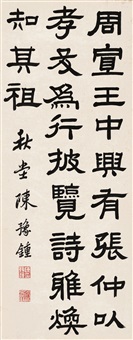 周宣王中興有張仲以
孝友為行披覽詩雅煥
知其祖
秋堂陳豫鍾